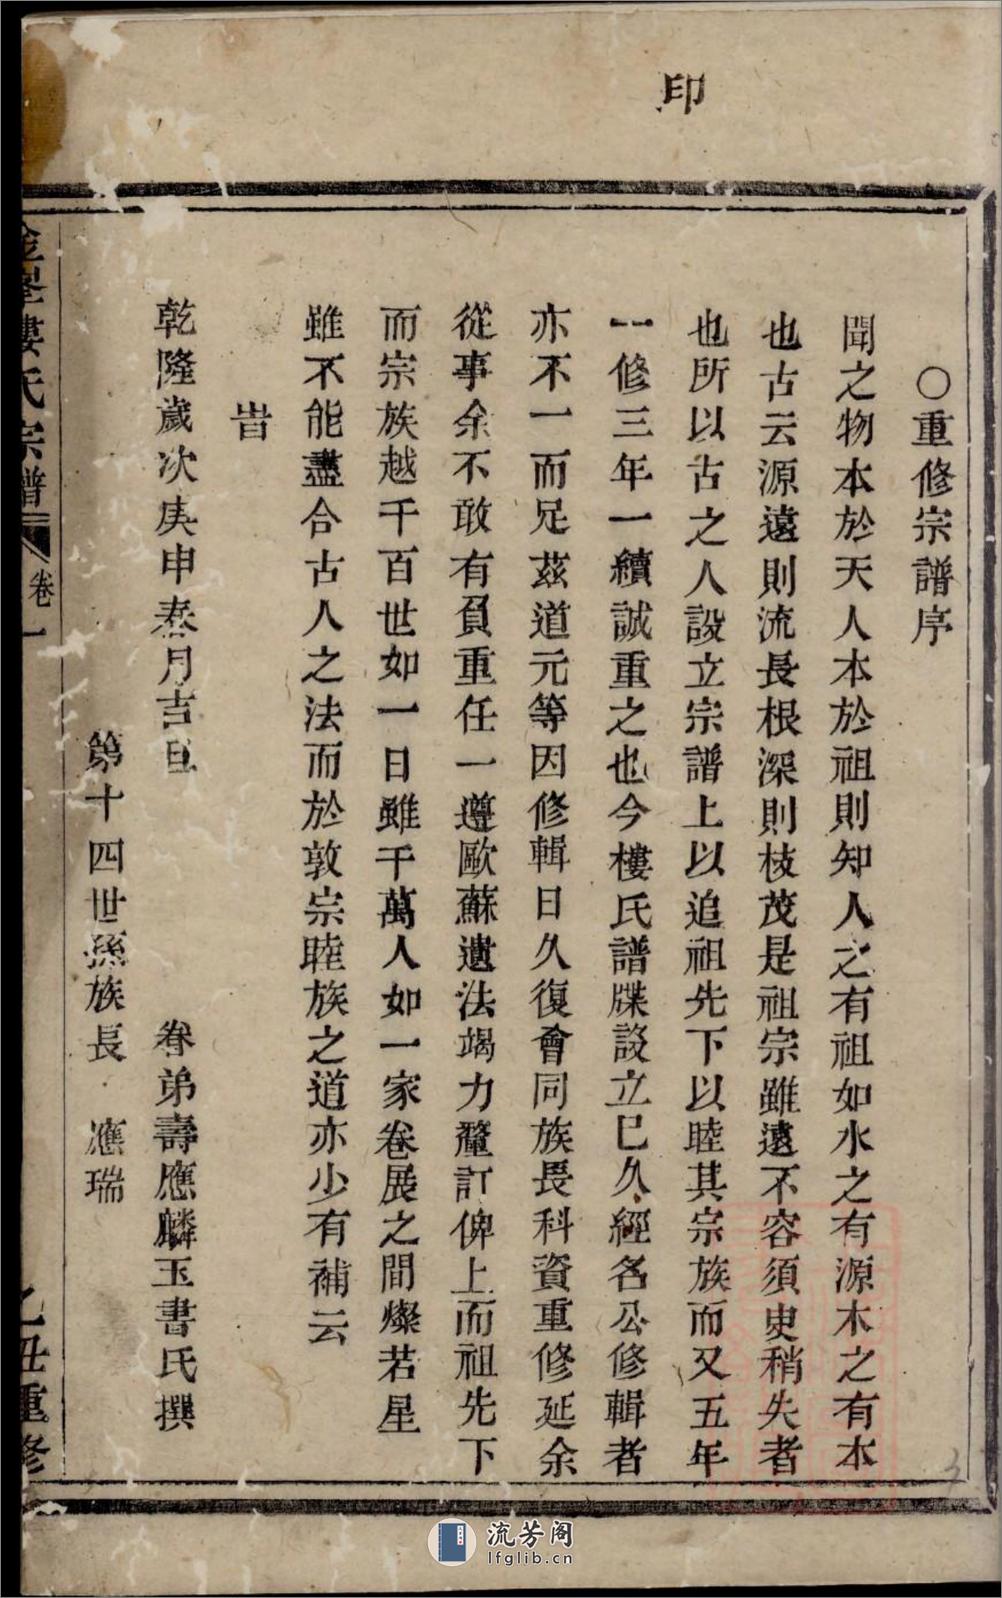 印
○重修宗譜序
聞之物本於天人本於祖則知人之有祖如水之有源木之有本
也古云源遠則流長根深則枝茂是祖宗雖遠不容須臾稍失者
也所以古之人設立宗譜上以追祖先下以睦其宗族而又五年
一修三年一續誠重之也今樓氏譜牒設立已久經名公修輯者
亦不一而足茲道元等因修輯日久復會同族長科資重修延余
從事余不敢有負重任一遵歐蘇遺法竭力釐訂俾上而祖先下
而宗族越千百世如一日雖千萬人如一家卷展之間燦若星
雖不能盡合古人之法而於敦宗睦族之道亦少有補云
旹
乾隆歲次庚申桊月吉旦 眷弟壽應麟玉書氏撰
第十四世孫族長 應瑞
樓氏宗譜 卷一 乙丑重修
流芳阁
lfglib.cn